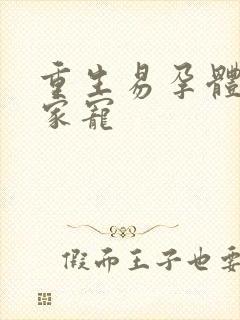 重生易孕體
家寵
假面王子也要